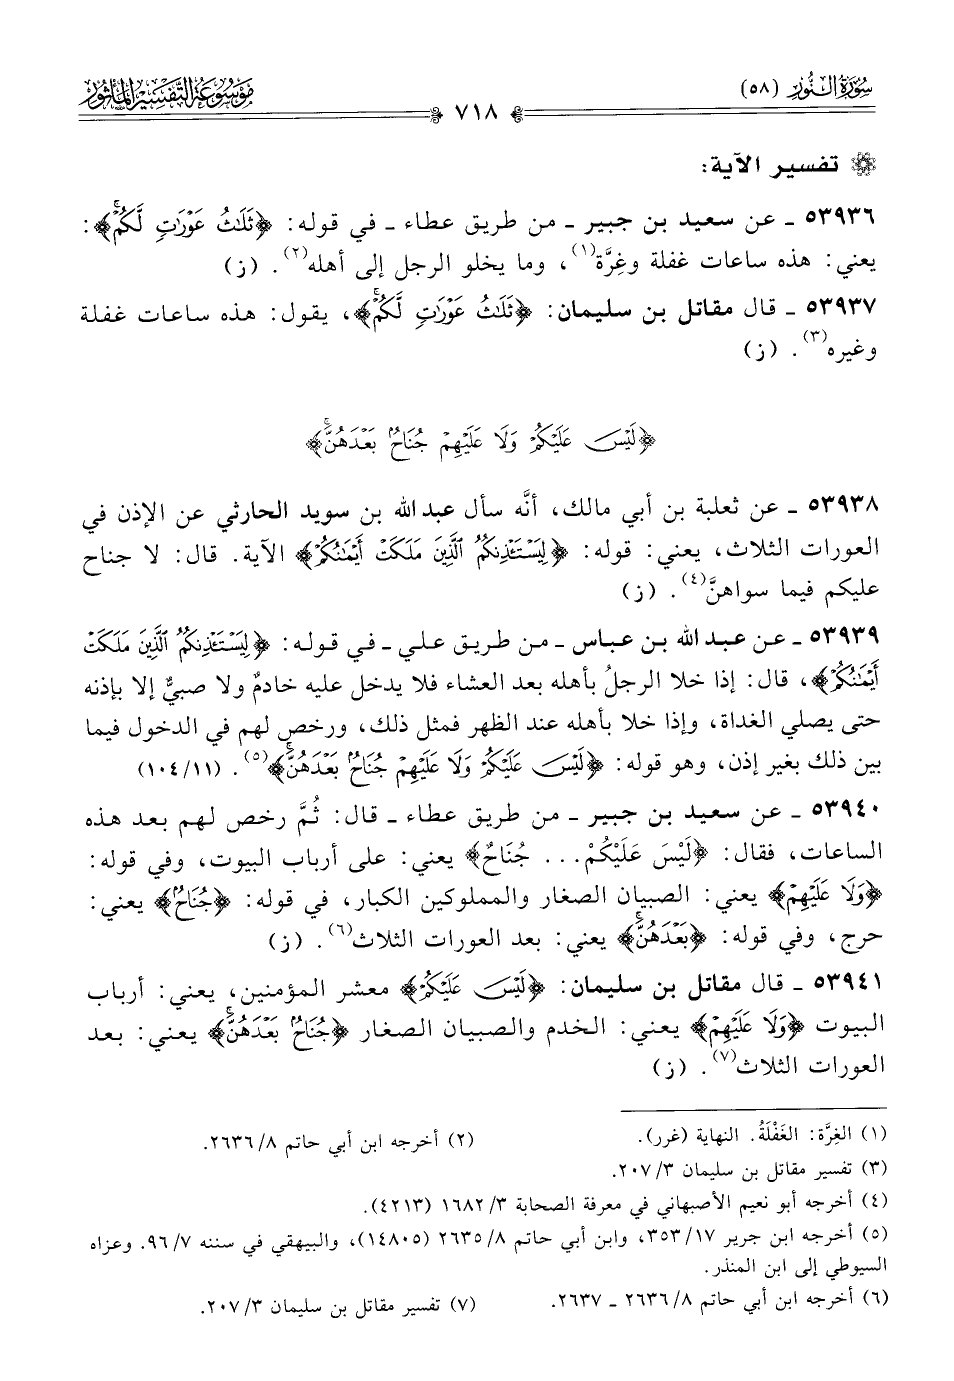 سُورَةُ النُّورِ (٥٨)
٧١٨
مَوْسُوعَة التَّفْسِيرُ المَأْثُور
تفسير الآية:
٥٣٩٣٦ ـ عن سعيد بن جبير ـ من طريق عطاء ـ في قوله: ﴿ثَلَٰثُ عَوْرَٰتٖ لَّكُمْۚ﴾:
يعني: هذه ساعات غفلة وغِرَّة(١)، وما يخلو الرجل إلى أهله(٢). (ز)
٥٣٩٣٧ ـ قال مقاتل بن سليمان: ﴿ثَلَٰثُ عَوْرَٰتٖ لَّكُمْۚ﴾، يقول: هذه ساعات غفلة
وغيره(٣). (ز)
﴿لَيْسَ عَلَيْكُمْ وَلَا عَلَيْهِمْ جُنَاحُۢ بَعْدَهُنَّۚ﴾
٥٣٩٣٨ ـ عن ثعلبة بن أبي مالك، أنَّه سأل عبد الله بن سويد الحارثي عن الإذن في
العورات الثلاث، يعني: قوله: ﴿لِيَسْتَـْٔذِنكُمُ ٱلَّذِينَ مَلَكَتْ أَيْمَٰنُكُمْ﴾ الآية. قال: لا جناح
عليكم فيما سواهنَّ(٤). (ز)
٥٣٩٣٩ ـ عن عبد الله بن عباس ـ من طريق علي ـ في قوله: ﴿لِيَسْتَـْٔذِنكُمُ ٱلَّذِينَ مَلَكَتْ
أَيْمَٰنُكُمْ﴾، قال: إذا خلا الرجلُ بأهله بعد العشاء فلا يدخل عليه خادمٌ ولا صبيٌّ إلا بإذنه
حتى يصلي الغداة، وإذا خلا بأهله عند الظهر فمثل ذلك، ورخص لهم في الدخول فيما
بين ذلك بغير إذن، وهو قوله: ﴿لَيْسَ عَلَيْكُمْ وَلَا عَلَيْهِمْ جُنَاحُۢ بَعْدَهُنَّۚ﴾(٥). (١٠٤/١١)
٥٣٩٤٠ ـ عن سعيد بن جبير ـ من طريق عطاء ـ قال: ثُمَّ رخص لهم بعد هذه
الساعات، فقال: ﴿لَيْسَ عَلَيْكُمْ... جُنَاحٌ﴾ يعني: على أرباب البيوت، وفي قوله:
﴿وَلَا عَلَيْهِمْ﴾ يعني: الصبيان الصغار والمملوكين الكبار، في قوله: ﴿جُنَاحُۢ﴾ يعني:
حرج، وفي قوله: ﴿بَعْدَهُنَّۚ﴾ يعني: بعد العورات الثلاث(٦). (ز)
٥٣٩٤١ ـ قال مقاتل بن سليمان: ﴿لَيْسَ عَلَيْكُمْ﴾ معشر المؤمنين، يعني: أرباب
البيوت ﴿وَلَا عَلَيْهِمْ﴾ يعني: الخدم والصبيان الصغار ﴿جُنَاحُۢ بَعْدَهُنَّۚ﴾ يعني: بعد
العورات الثلاث(٧). (ز)
(١) الغِرَّة: الغَفْلَةُ. النهاية (غرر). (٢) أخرجه ابن أبي حاتم ٨/ ٢٦٣٦.
(٣) تفسير مقاتل بن سليمان ٣/ ٢٠٧.
(٤) أخرجه أبو نعيم الأصبهاني في معرفة الصحابة ٣/ ١٦٨٢ (٤٢١٣).
(٥) أخرجه ابن جرير ١٧/ ٣٥٣، وابن أبي حاتم ٨/ ٢٦٣٥ (١٤٨٠٥)، والبيهقي في سننه ٧/ ٩٦. وعزاه
السيوطي إلى ابن المنذر.
(٦) أخرجه ابن أبي حاتم ٨/ ٢٦٣٦ ـ ٢٦٣٧. (٧) تفسير مقاتل بن سليمان ٣/ ٢٠٧.